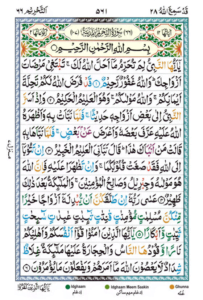 قَدْ سَمِعَ اللّٰهُ ٢٨ ٥٧١ التحريم ٦٦
بِسْمِ اللّٰهِ الرَّحْمٰنِ الرَّحِيْمِ
يٰۤاَيُّهَا النَّبِيُّ لِمَ تُحَرِّمُ مَاۤ اَحَلَّ اللّٰهُ لَكَ ۚ تَبْتَغِيْ مَرْضَاتَ
اَزْوَاجِكَ ؕ وَاللّٰهُ غَفُوْرٌ رَّحِيْمٌ ۝ قَدْ فَرَضَ اللّٰهُ لَكُمْ تَحِلَّةَ
اَيْمَانِكُمْ ۚ وَاللّٰهُ مَوْلٰىكُمْ ۚ وَهُوَ الْعَلِيْمُ الْحَكِيْمُ ۝ وَاِذْ اَسَرَّ
النَّبِيُّ اِلٰى بَعْضِ اَزْوَاجِهٖ حَدِيْثًا ۚ فَلَمَّا نَبَّاَتْ بِهٖ وَاَظْهَرَهُ
اللّٰهُ عَلَيْهِ عَرَّفَ بَعْضَهٗ وَاَعْرَضَ عَنْۢ بَعْضٍ ۚ فَلَمَّا نَبَّاَهَا بِهٖ
قَالَتْ مَنْ اَنْۢبَاَكَ هٰذَا ؕ قَالَ نَبَّاَنِيَ الْعَلِيْمُ الْخَبِيْرُ ۝ اِنْ تَتُوْبَاۤ
اِلَى اللّٰهِ فَقَدْ صَغَتْ قُلُوْبُكُمَا ۚ وَاِنْ تَظٰهَرَا عَلَيْهِ فَاِنَّ اللّٰهَ
هُوَ مَوْلٰىهُ وَجِبْرِيْلُ وَصَالِحُ الْمُؤْمِنِيْنَ ۚ وَالْمَلٰٓئِكَةُ بَعْدَ ذٰلِكَ
ظَهِيْرٌ ۝ عَسٰى رَبُّهٗۤ اِنْ طَلَّقَكُنَّ اَنْ يُّبْدِلَهٗۤ اَزْوَاجًا خَيْرًا
مِّنْكُنَّ مُسْلِمٰتٍ مُّؤْمِنٰتٍ قٰنِتٰتٍ تٰٓئِبٰتٍ عٰبِدٰتٍ سٰٓئِحٰتٍ ثَيِّبٰتٍ
وَّاَبْكَارًا ۝ يٰۤاَيُّهَا الَّذِيْنَ اٰمَنُوْا قُوْۤا اَنْفُسَكُمْ وَاَهْلِيْكُمْ
نَارًا وَّقُوْدُهَا النَّاسُ وَالْحِجَارَةُ عَلَيْهَا مَلٰٓئِكَةٌ غِلَاظٌ
شِدَادٌ لَّا يَعْصُوْنَ اللّٰهَ مَاۤ اَمَرَهُمْ وَيَفْعَلُوْنَ مَا يُؤْمَرُوْنَ ۝
Idghaam Idghaam Meem Saakin Ghunna